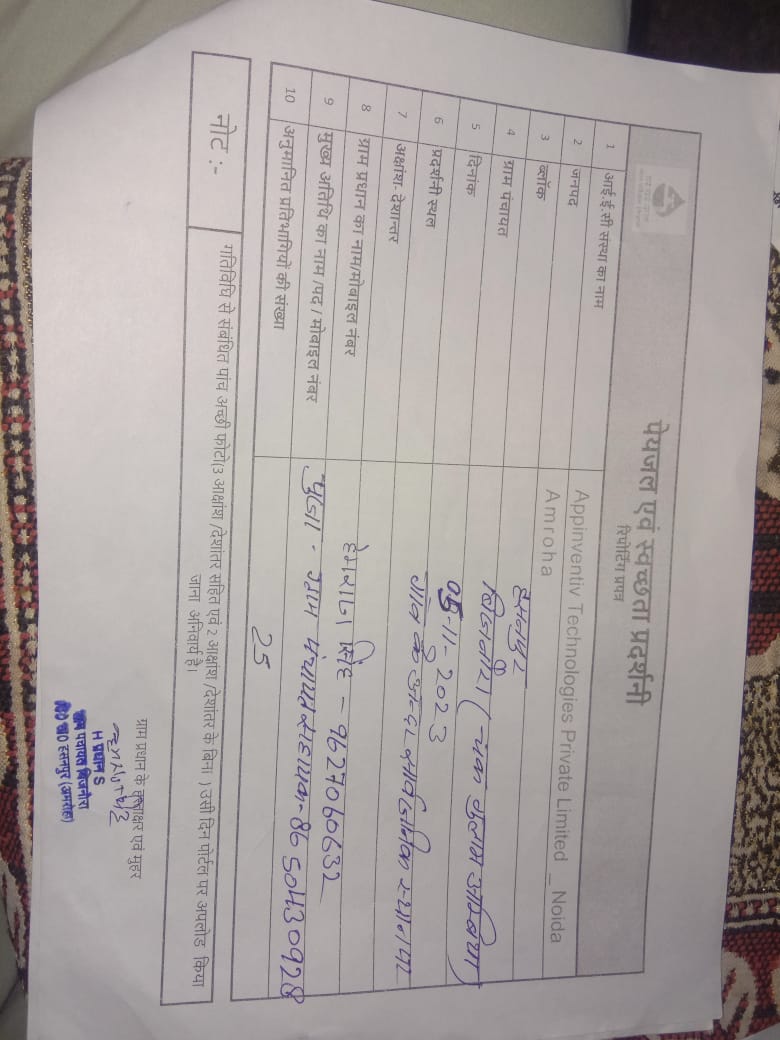 पेयजल एवं स्वच्छता प्रदर्शनी
रिपोर्टिंग प्रपत्र
1 आई.ई.सी संस्था का नाम Appinventiv Technologies Private Limited _ Noida
2 जनपद Amroha
3 ब्लॉक हसनपुर
4 ग्राम पंचायत बिजनौरा (चक
5 दिनांक 05-11-2023
6 प्रदर्शनी स्थल गांव के अन्दर सार्वजनिक स्थान पर
7 अक्षांश-देशान्तर
8 ग्राम प्रधान का नाम/मोबाइल नंबर हेमराज सिंह - 9627060632
9 मुख्य अतिथि का नाम /पद / मोबाइल नंबर पूजा - ग्राम पंचायत सहायक - 8650430928
10 अनुमानित प्रतिभागियों की संख्या 25
नोट :- गतिविधि से संबंधित पांच अच्छी फोटो(3 आक्षांश /देशांतर सहित एवं 2 आक्षांश /देशांतर के बिना ) उसी दिन पोर्टल पर अपलोड किया
जाना अनिवार्य है।
ग्राम प्रधान के हस्ताक्षर एवं मुहर
प्रधान
ग्राम पंचायत बिजनौरा
हसनपुर (अमरोहा)